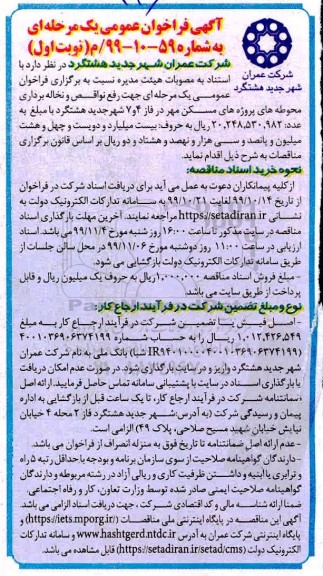 آگهی فراخوان عمومی یک مرحله ای
به شماره ۵۹-۱۰-۹۹/م( نوبت اول)
شرکت عمران
شهر جدید هشتگرد
شرکت عمران شهر جدید هشتگرد در نظر دارد با
استناد به مصوبات هیئت مدیره نسبت به برگزاری فراخوان
عمومی یک مرحله ای جهت رفع نواقص و نخاله برداری
محوطه های پروژه های مسکن مهر در فاز ۴و۷ شهرجدید هشتگرد با مبلغ به
عدد: ۲۰,۲۴۸,۵۳۰,۹۸۲ ریال به حروف: بیست میلیارد و دویست و چهل و هشت
میلیون و پانصد و سی هزار و نهصد و هشتاد و دو ریال بر اساس قانون برگزاری
مناقصات به شرح ذیل اقدام نماید.
نحوه خرید اسناد مناقصه:
از کلیه پیمانکاران دعوت به عمل می آید برای دریافت اسناد شرکت در فراخوان
از تاریخ ۹۹/۱۰/۱۴ لغایت ۹۹/۱۰/۲۱ به سامانه تدارکات الکترونیک دولت به
نشانی https//setadiran.ir مراجعه نمایند. آخرین مهلت بارگذاری اسناد
مناقصه در سایت مذکور تا ساعت ۱۶:۰۰ روز شنبه مورخ ۹۹/۱۱/۰۴ می باشد. اسناد
ارزیابی در ساعت ۱۱:۰۰ روز دوشنبه مورخ ۹۹/۱۱/۰۶ در محل سالن جلسات از
طریق سامانه تدارکات الکترونیک دولت بازگشایی می شود.
- مبلغ فروش اسناد مناقصه ۱,۰۰۰,۰۰۰ریال به حروف یک میلیون ریال و قابل
پرداخت از طریق سایت می باشد.
نوع و مبلغ تضمین شرکت در فرآیند ارجاع کار:
- اصل فیش یا تضمین شرکت در فرآیند ارجاع کار به مبلغ
۱,۰۱۲,۴۲۶,۵۴۹ ریال به شماره حساب
شبا) بانک ملی به نام شرکت عمران
شهر جدید هشتگرد واریز و در سایت بارگذاری شود. در صورت عدم امکان دریافت
یا بارگذاری اسناد در سایت با پشتیبانی سامانه تماس حاصل فرمایید. ارائه اصل
ضمانتنامه شرکت در فرآیند ارجاع کار، تا یک ساعت قبل از بازگشایی به اداره
پیمان و رسیدگی شرکت (به آدرس:شهر جدید هشتگرد فاز ۲ محله ۴ خیابان
نیایش خیابان شهید مسیح صلاحی، پلاک ۴۹) الزامی است.
- عدم ارائه اصل ضمانتنامه تا تاریخ فوق به منزله انصراف از فراخوان می باشد.
- دارندگان گواهینامه صلاحیت از سوی سازمان برنامه و بودجه با حداقل رتبه ۵ راه
و ترابری یا ابنیه و داشتن ظرفیت کاری و ریالی آزاد در رشته مربوطه و دارندگان
گواهینامه صلاحیت ایمنی صادر شده توسط وزارت تعاون، کار و رفاه اجتماعی.
ضمنا ارائه شناسه ملی و کد اقتصادی شرکت، جهت دریافت اسناد الزامی می باشد.
آگهی این مناقصه در پایگاه اینترنتی ملی مناقصات (https://iets.mporg.ir/) و
پایگاه اینترنتی شرکت عمران به آدرس www.hashtgerd.ntdc.ir و سامانه تدارکات
الکترونیک دولت (https://setadiran.ir/setad/cms) قابل مشاهده می باشد.